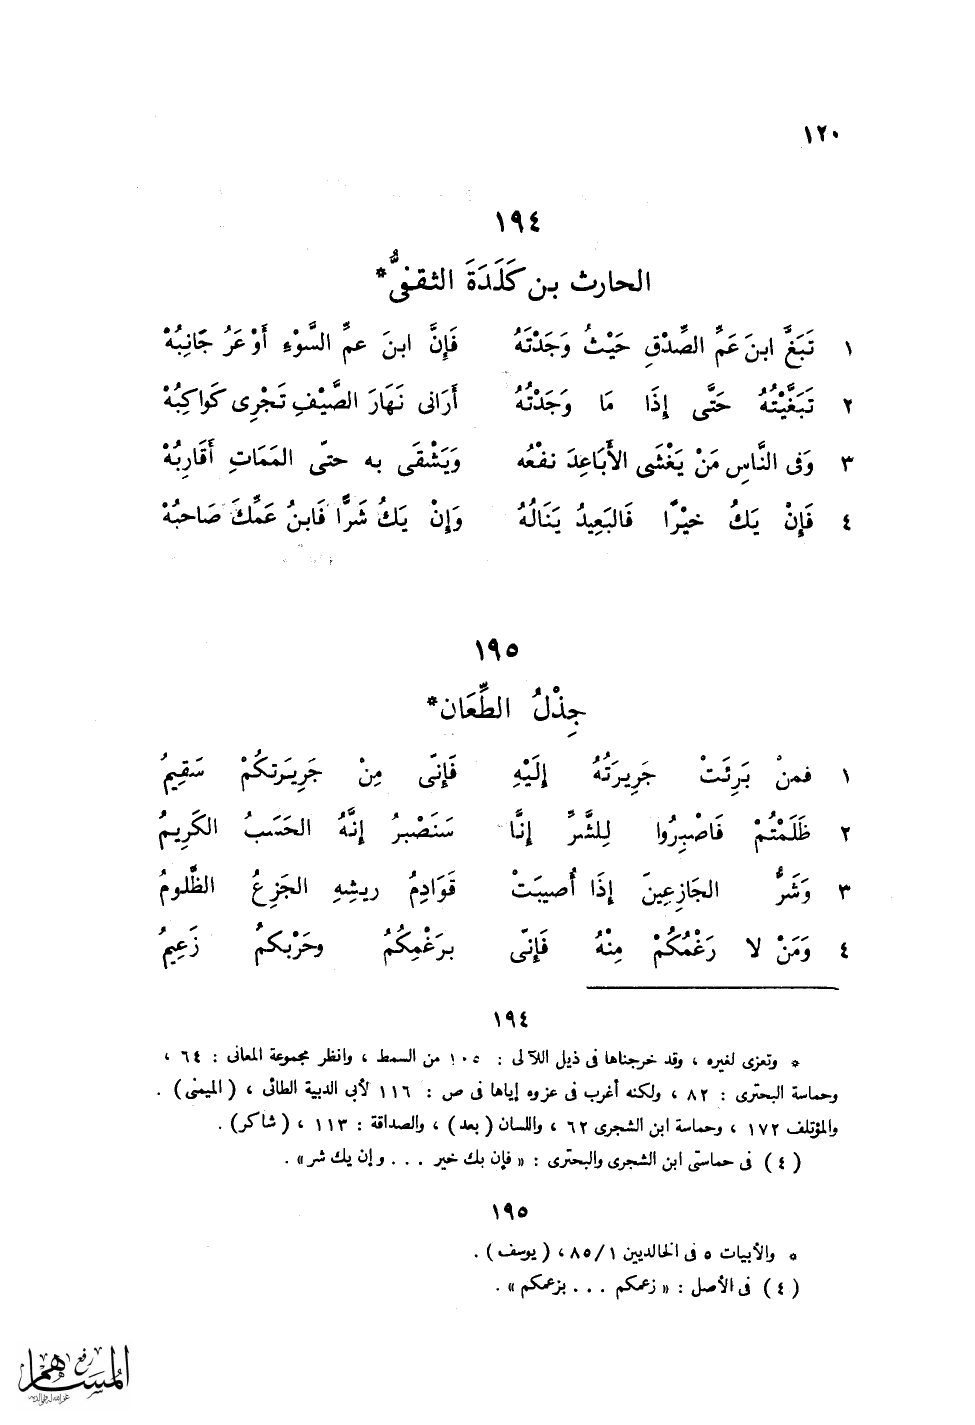 ١٢٠
١٩٤
الحارث بن كَلَدَةَ الثقفىُّ*
١ تَبَغَّ ابنَ عَمِّ الصِّدْقِ حَيْثُ وَجَدْتَهُ فَإِنَّ ابنَ عمِّ السَّوْءِ أَوْعَرُ جَانِبُهْ
٢ تَبَغَّيْتُهُ حَتَّى إِذَا مَا وَجَدْتُهُ أَرَانى نَهَارَ الصَّيْفِ تَجْرِى كَواكِبُهْ
٣ وَفى النَّاسِ مَنْ يَغْشَى الأَبَاعِدَ نفْعُه وَيَشْقَى به حتّى المَمَاتِ أَقَارِبُهْ
٤ فَإِنْ يَكُ خيْرًا فَالبَعِيدُ يَنَالُهُ وَإِنْ يَكُ شَرًّا فَابنُ عَمِّكَ صَاحبُهْ
١٩٥
جِذْلُ الطِّعَان*
١ فمنْ بَرِئَتْ جَرِيرَتُهُ إِلَيْهِ فَإِنّى مِنْ جَرِيرَتكُمْ سَقِيمُ
٢ ظَلَمْتُمْ فَاصْبِرُوا لِلشَّرِّ إِنَّا سَنَصْبرُ إِنَّهُ الحَسَبُ الكَرِيمُ
٣ وَشَرُّ الجَازِعِينَ إِذَا أُصيبَتْ قَوَادِمُ ريشِهِ الجَزِعُ الظَّلومُ
٤ وَمَنْ لا رَغْمُكُمْ مِنْهُ فَإِنّى برَغْمِكُمُ وحَرْبكمُ زَعِيمُ
١٩٤
* وتعزى لغيره ، وقد خرجناها فى ذيل اللآلى : ١٠٥ من السمط ، وانظر مجموعة المعانى : ٦٤ ،
وحماسة البحترى : ٨٢ ، ولكنه أغرب فى عزوه إياها فى ص : ١١٦ لأبى الدبية الطائى ، ( الميمنى ) .
والمؤتلف ١٧٢ ، وحماسة ابن الشجرى ٦٢ ، واللسان ( بعد ) ، والصداقة : ١١٣ ، ( شاكر ) .
( ٤ ) فى حماستى ابن الشجرى والبحترى : « فإن بك خير . . . وإن يك شر » .
١٩٥
* والأبيات ٥ فى الخالديين ٨٥/١ ، ( يوسف ) .
( ٤ ) فى الأصل : « زعمكم . . . بزعمكم » .
رفع
المساهم